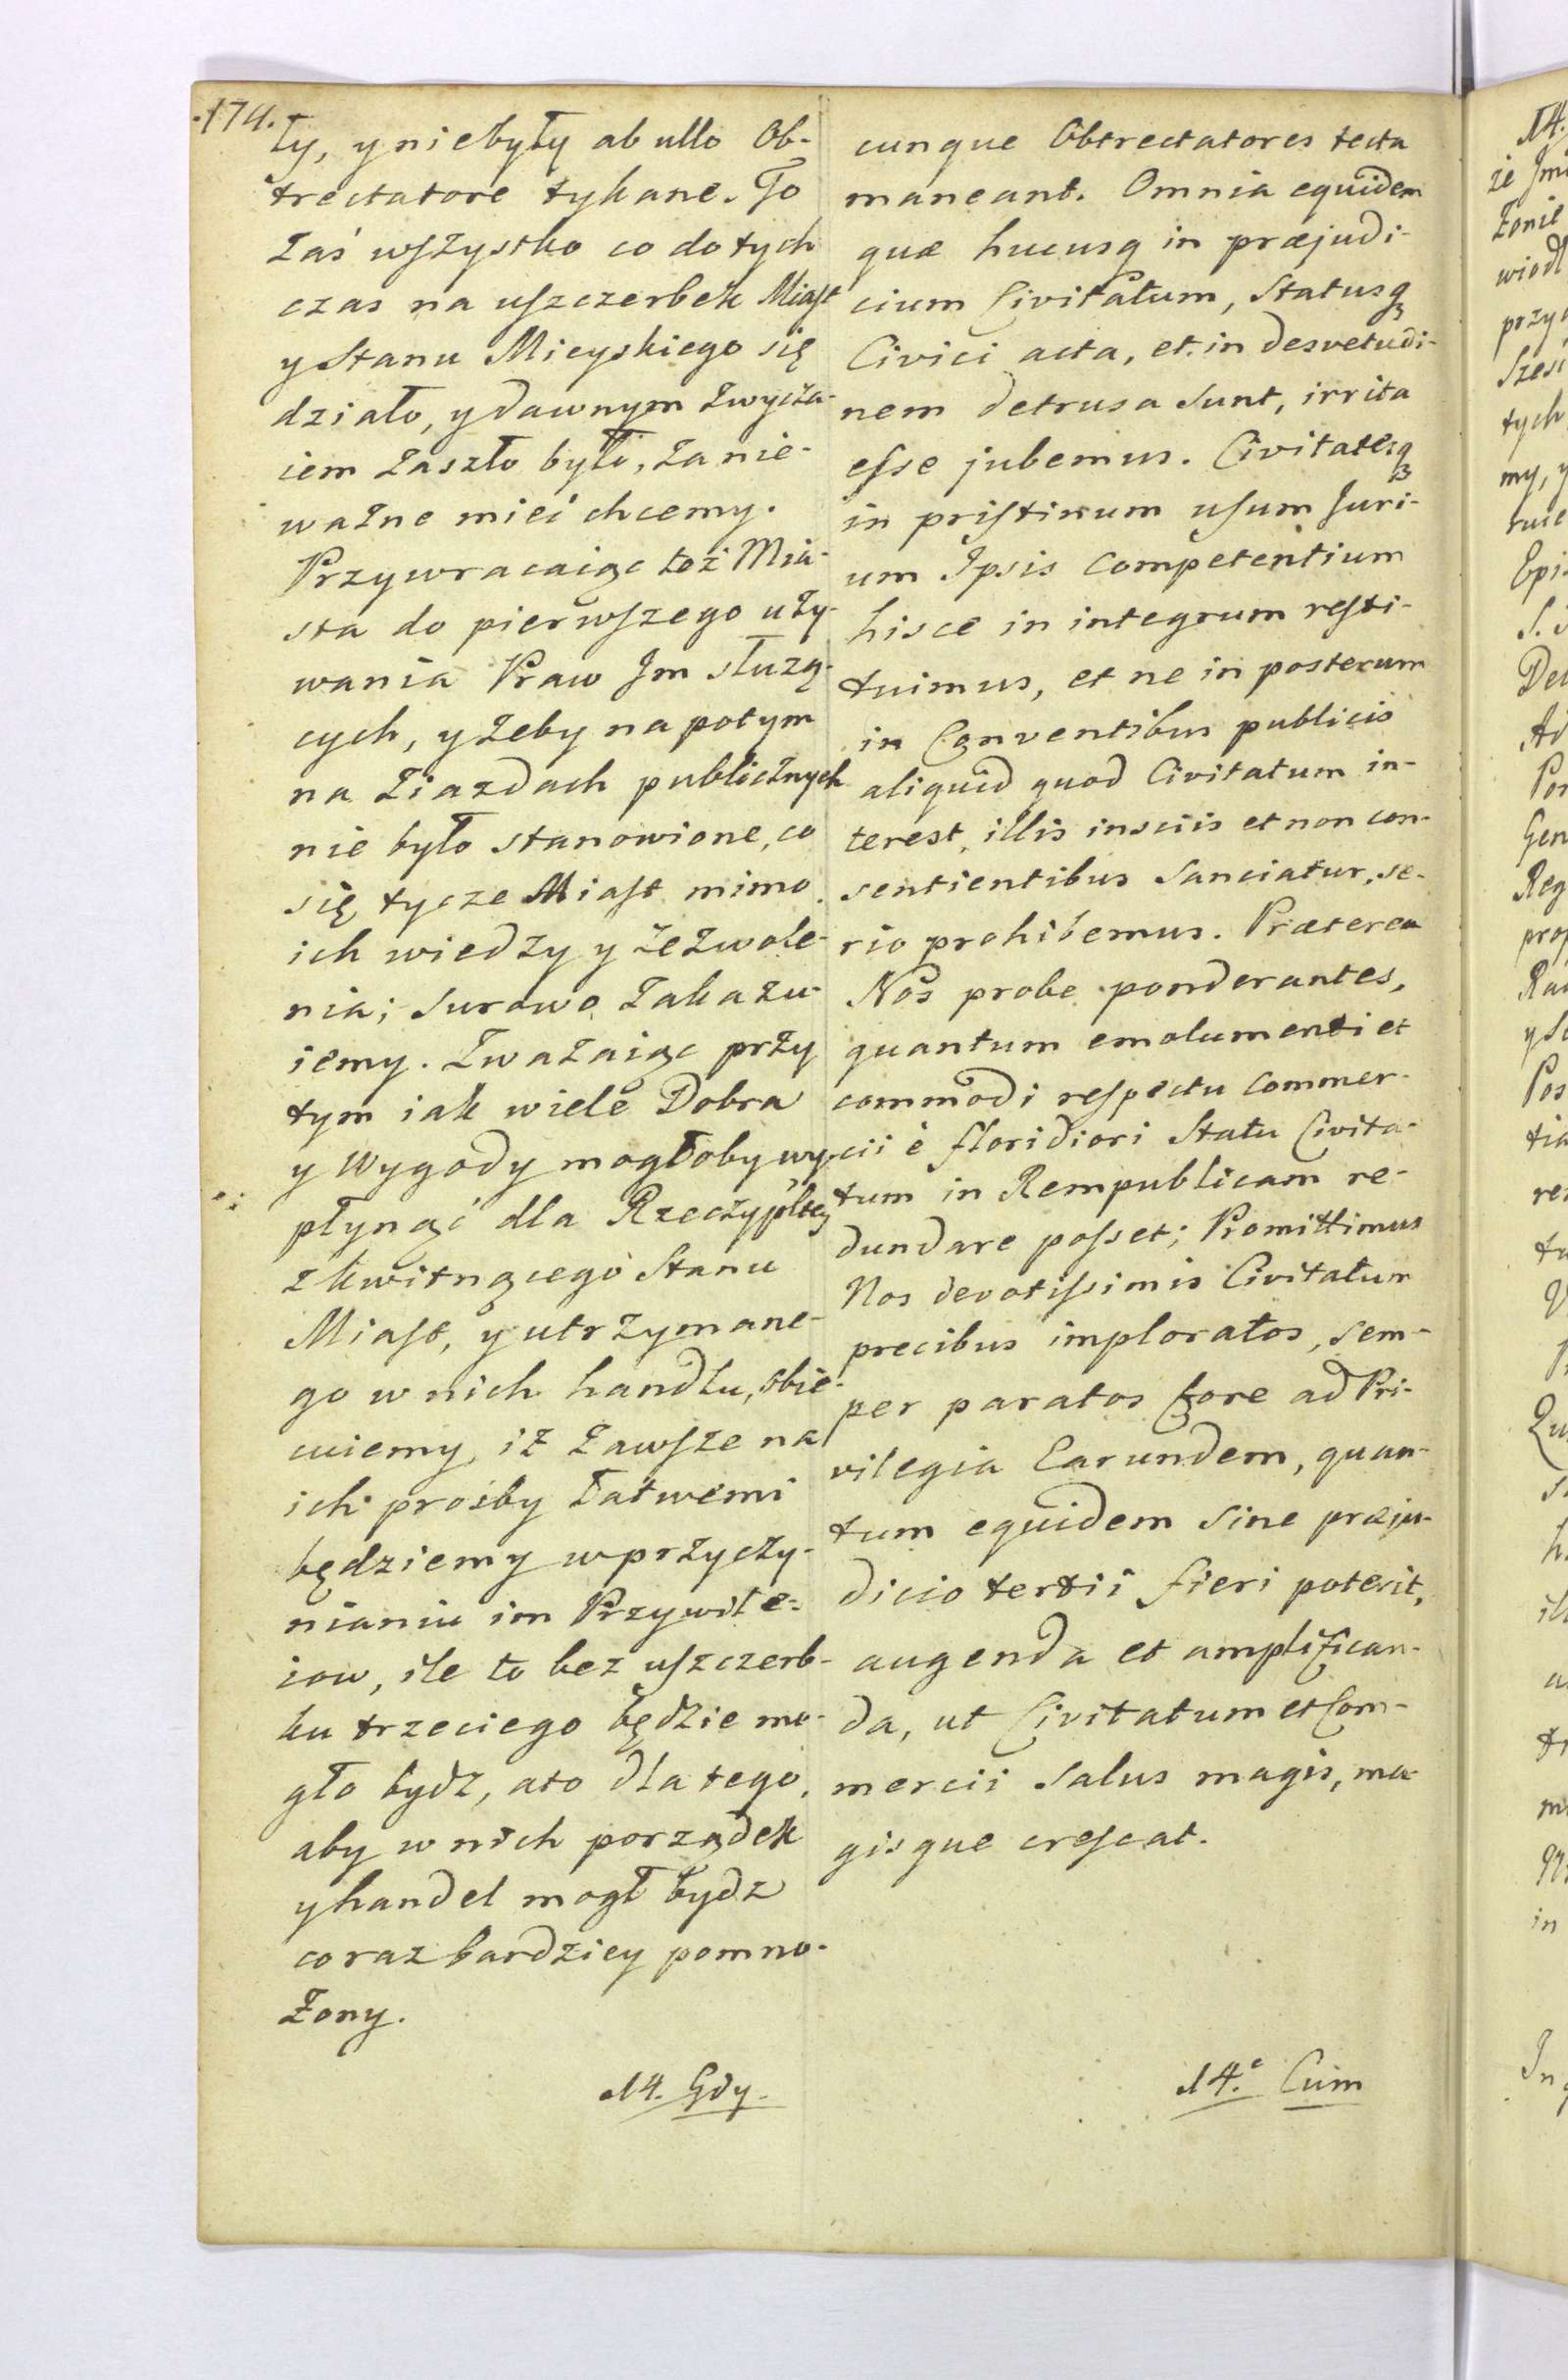 174.
ły, y niebyły ab ullo Ob-
trectatore tykane. To
zaś wszystko co do tych
czas na uszczerbek Miast
y Stanu Mieyskiego się
działo, y dawnym zwycza-
iem zaszło było, za nie-
ważne mieć chcemy.
Przywracaiąc też Mia-
sta do pierwszego uży-
wania Praw Jm słuzą-
cych, y żeby na potym
na Ziazdach publicznych
nie było stanowione, co
się tycze Miast mimo
ich wiedzy y zezwole-
nia; surowo zakazu-
iemy. Zważaiąc przy
tym iak wiele Dobra
y Wygody mogłoby wy-
płynąć dla Rzeczypltey
z kwitnącego Stanu
Miast, y utrzymane-
go w nich handlu, obie-
cuiemy, iż zawsze na
ich prośby łatwemi
będziemy w przyczy-
nianiu im Przywile-
iow, ile to bez uszczerb-
ku trzeciego będzie mo-
gło bydz, a to dla tego,
aby w nich porządek
y handel mogł bydz
coraz bardziey pomno-
żony.
14. Gdy.
cunque Obtrectatores tecta
maneant. Omnia equidem
quæ hucusq in præjudi-
cium Civitatum, Statusq
Civici acta, et in desvetudi-
nem detrusa sunt, irrita
esse jubemus. Civitatesq
in pristinum usum Juri-
um Ipsis competentium
hisce in integrum resti-
tuimus, et ne in posterum
in Conventibus publicis
aliquid quod Civitatum in-
terest, illis insciis et non con-
sentientibus sanciatur, se-
rio prohibemus. Præterea
Nos probe ponderantes,
quantum emolumenti et
commodi respectu commer-
cii è floridiori Statu Civita-
tum in Rempublicam re-
dundare posset; Promittimus
Nos devotissimis Civitatum
precibus imploratos, sem-
per paratos fore ad Pri-
vilegia Earundem, quan-
tum equidem sine præju-
dicio tertii fieri poterit,
augenda et amplifican-
da, ut Civitatum et Com-
mercii salus magis, ma-
gisque crescat.
14. Cum